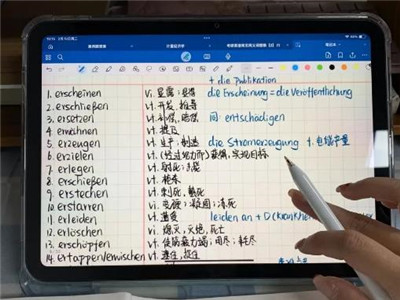 + die Publikation
1. erscheinen vi. 显露，出版 die Erscheinung = die Veröffentlichung
2. erschließen vt. 开发，推导
3. ersetzen vt. 补偿，赔偿 同 entschädigen
4. erwähnen vt. 提及
5. erzeugen vt. 生产；制造 die Stromerzeugung f. 电能产量
6. erzielen vt. (经过努力而)获得，实现目标
7. erlegen vt.
8. erschießen vt.
9. erstochen vt. 刺死，
10. erstarren vi. 变硬；凝固；冻死
11. erleiden vt. 遭受 leiden an + D
12. erlöschen vi. 熄灭，灭绝，死亡
13. erschöpfen vt. 使筋疲力竭；用尽；耗尽
14. ertappen/erwischen vt. 逮住，捉住